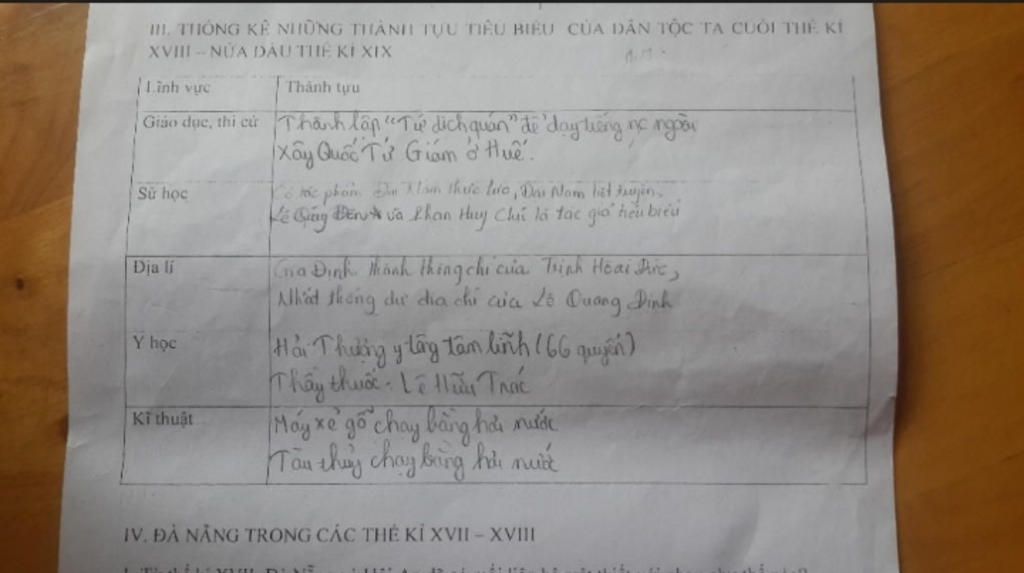 III. THỐNG KÊ NHỮNG THÀNH TỰU TIÊU BIỂU CỦA DÂN TỘC TA CUỐI THẾ KỈ
XVIII – NỬA ĐẦU THẾ KỈ XIX
Lĩnh vực Thành tựu
Giáo dục, thi cử Thành lập "Tứ dịch quán" để dạy tiếng nc ngoài
Xây Quốc Tử Giám ở Huế.
Sử học Có tác phẩm Đại Nam thực lục, Đại Nam liệt truyện,
Lê Quý Đôn và Phan Huy Chú là tác giả tiêu biểu
Địa lí Gia Định thành thông chí của Trịnh Hoài Đức,
Nhất thống dư địa chí của Lê Quang Định
Y học Hải Thượng y tông tâm lĩnh (66 quyển)
Thầy thuốc - Lê Hữu Trác
Kĩ thuật Máy xẻ gỗ chạy bằng hơi nước
Tàu thủy chạy bằng hơi nước
IV. ĐÀ NẴNG TRONG CÁC THẾ KỈ XVII – XVIII